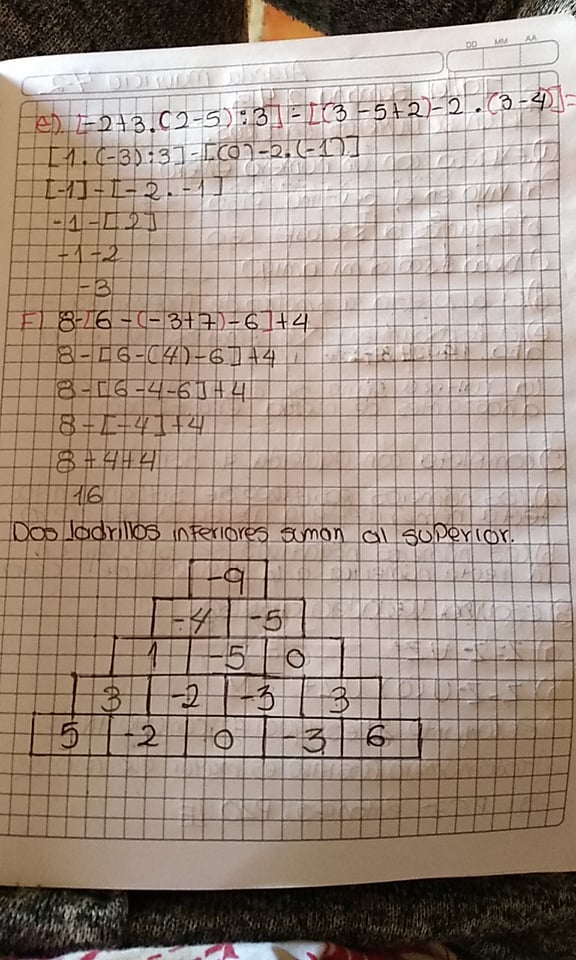 DD MM AA
e). [-2+3.(2-5):3]-[(3-5+2)-2.(3-4)]=
[1.(-3):3]-[(0)-2.(-1)]
[-1]-[-2.-1]
-1-[2]
-1-2
-3
F) 8-[6-(-3+7)-6]+4
8-[6-(4)-6]+4
8-[6-4-6]+4
8-[-4]+4
8+4+4
16
Dos ladrillos inferiores suman al superior.
-9
-4 -5
1 -5 0
3 -2 -3 3
5 -2 0 -3 6